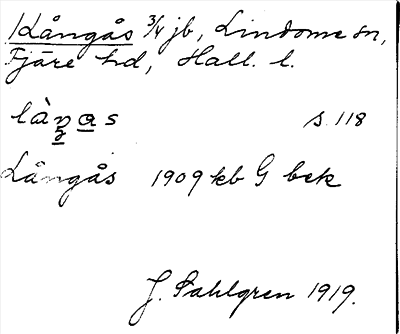 Långås 3/4 jb, Lindome sn,
Fjäre hd, Hall. l.
s. 118
Långås 1909 kb G bek
J. Sahlgren 1919.